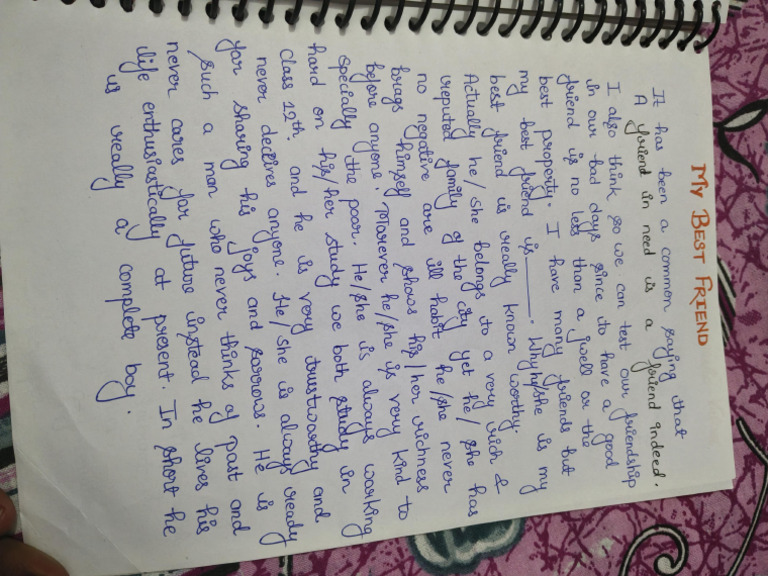 MY BEST FRIEND
It has been a common saying that
A friend in need is a friend indeed.
I also think so we can test our friendship
in our bad days since to have a good
friend is no less than a jwell or the
best property. I have many friends but
my best friend is______. Why he/she is my
best friend is really known worthy
Actually he/she belongs to a very rich &
reputed family of the city yet he/she has
no negative are ill habit he/she never
brags himself and shows his/her richness
before anyone. Marever he/she is very kind to
specially the poor. He/she is always working
hard on his/her study we both study in
class 12th. and he is very trustworthy and
never decives anyone. He/she is always ready
for sharing his joys and sorrows. He is
such a man who never thinks of past and
never cares for future instead he lives his
life enthusiastically at present. In short he
is really a complete boy.